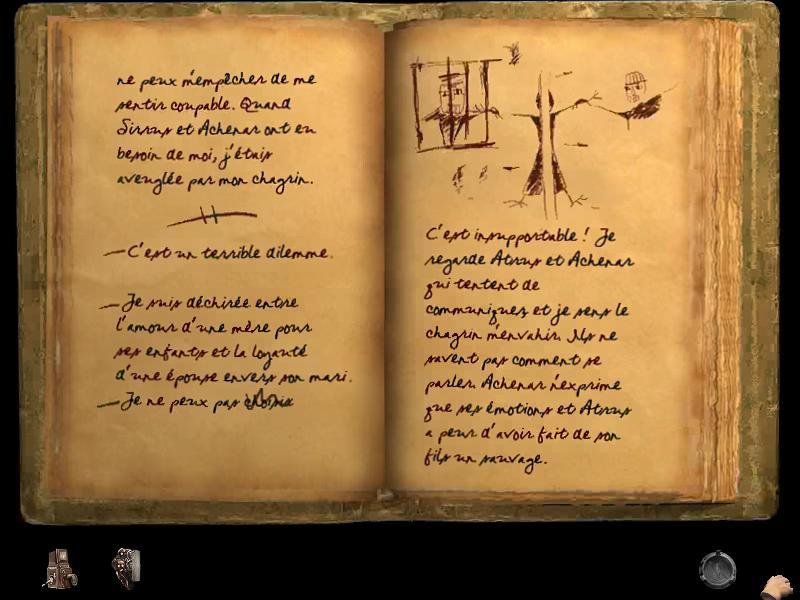 ne peux m'empêcher de me
sentir coupable. Quand
Sirrus et Achenar ont eu
besoin de moi, j'étais
aveuglée par mon chagrin.
— C'est un terrible dilemme.
— Je suis déchirée entre
l'amour d'une mère pour
ses enfants et la loyauté
d'une épouse envers son mari.
— Je ne peux pas
C'est insupportable ! Je
regarde Atrus et Achenar
qui tentent de
communiquer et je sens le
chagrin m'envahir. Ils ne
savent pas comment se
parler. Achenar n'exprime
que ses émotions et Atrus
a peur d'avoir fait de son
fils un sauvage.